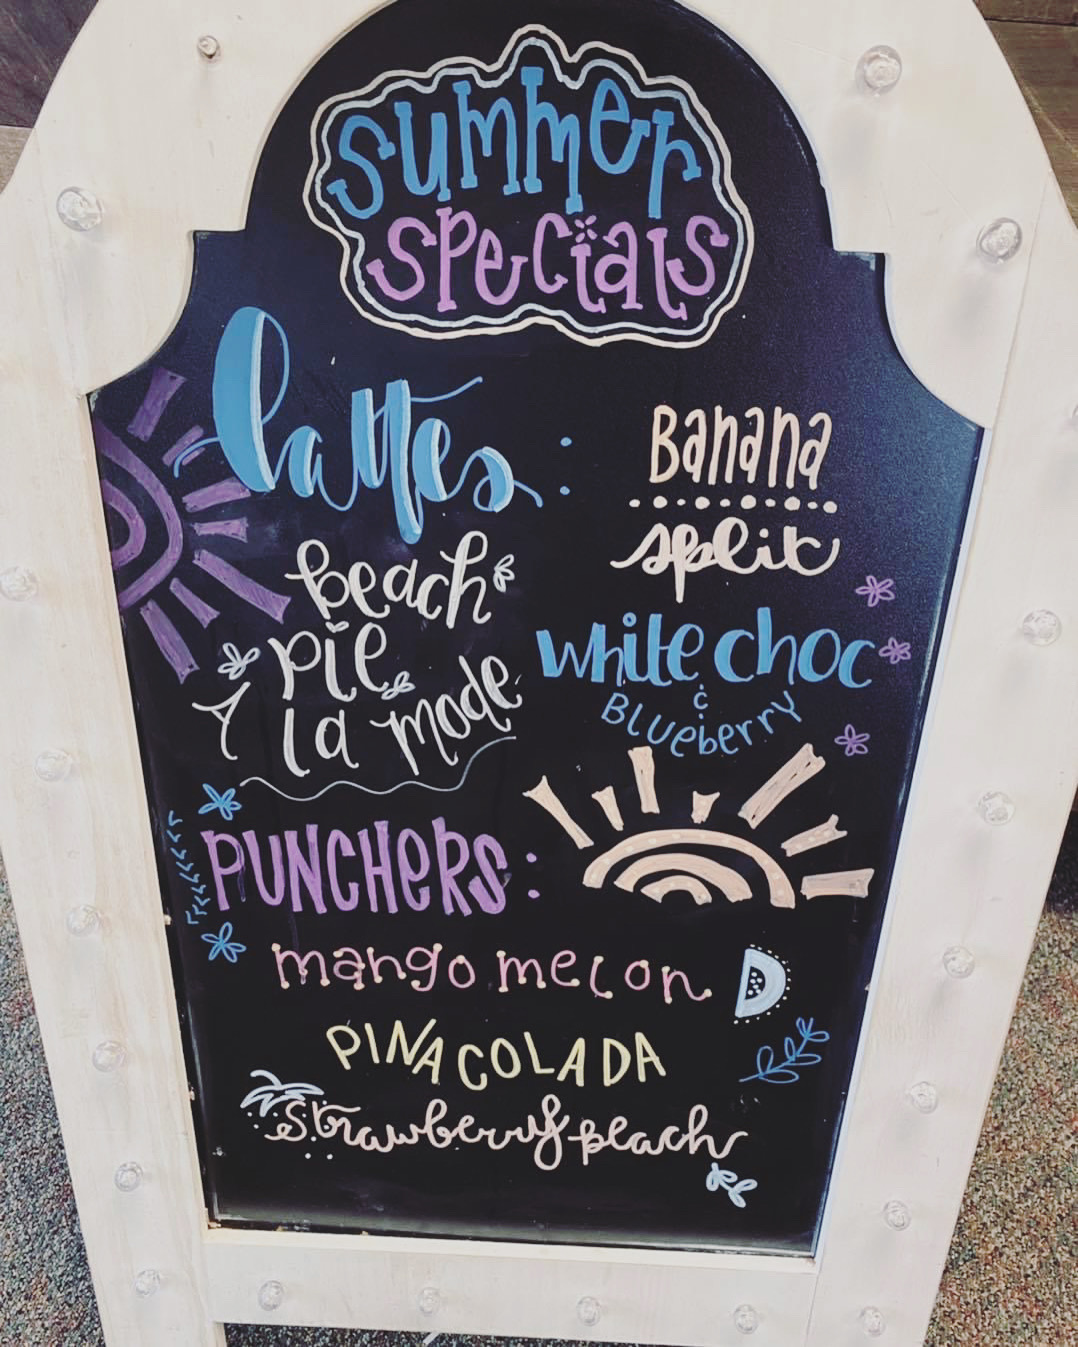 summer
specials
lattes:
peach
pie
A la mode
Banana
split
white choc
&
Blueberry
PUNCHERS:
mango melon
PINA COLADA
strawberry peach